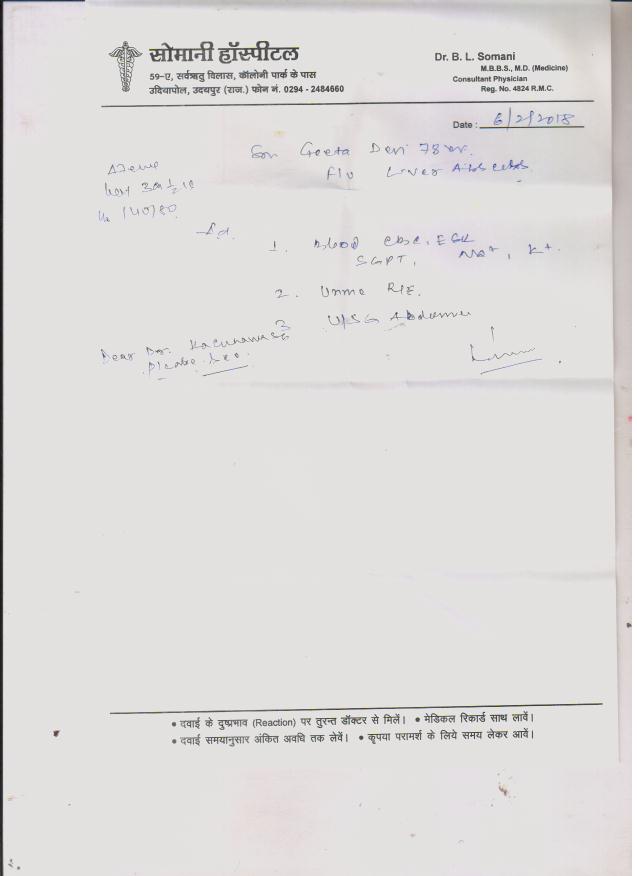 सोमानी हॉस्पीटल
59-ए, सर्वऋतु विलास, कॉलोनी पार्क के पास
उदियापोल, उदयपुर (राज.) फोन नं. 0294 - 2484660
Dr. B. L. Somani
M.B.B.S., M.D. (Medicine)
Consultant Physician
Reg. No. 4824 R.M.C.
Date : 6/2/2018
Geeta Devi 78
F/U Liver Abscess
140/80
1. Blood CBC, ESR
SGPT, Na+, K+
2. Urine R/E.
3 USG Abdomen
Dear Dr.
Please see
• दवाई के दुष्प्रभाव (Reaction) पर तुरन्त डॉक्टर से मिलें। • मेडिकल रिकार्ड साथ लावें।
• दवाई समयानुसार अंकित अवधि तक लेवें। • कृपया परामर्श के लिये समय लेकर आवें।